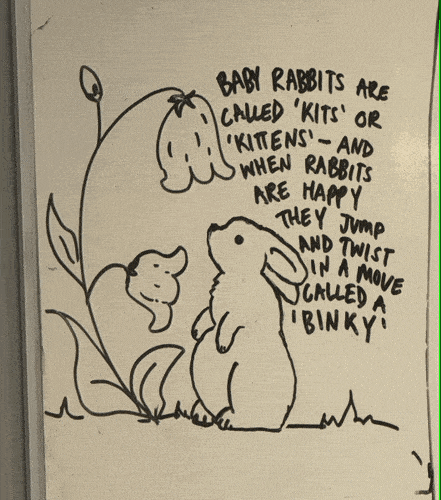 BABY RABBITS ARE
CALLED 'KITS' OR
'KITTENS' - AND
WHEN RABBITS
ARE HAPPY
THEY JUMP
AND TWIST
IN A MOVE
CALLED A
'BINKY'